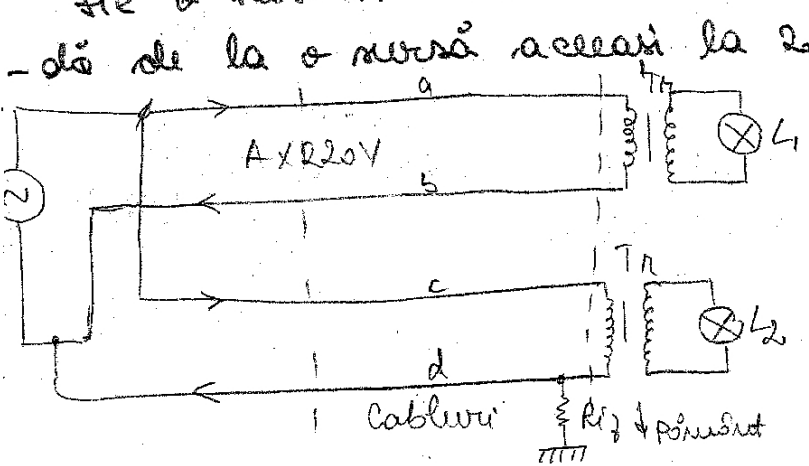 - dă de la o sursă aceeasi la 2
a
Tr
L1
b
c
Tr
L2
d
Cabluri
Riz pământ